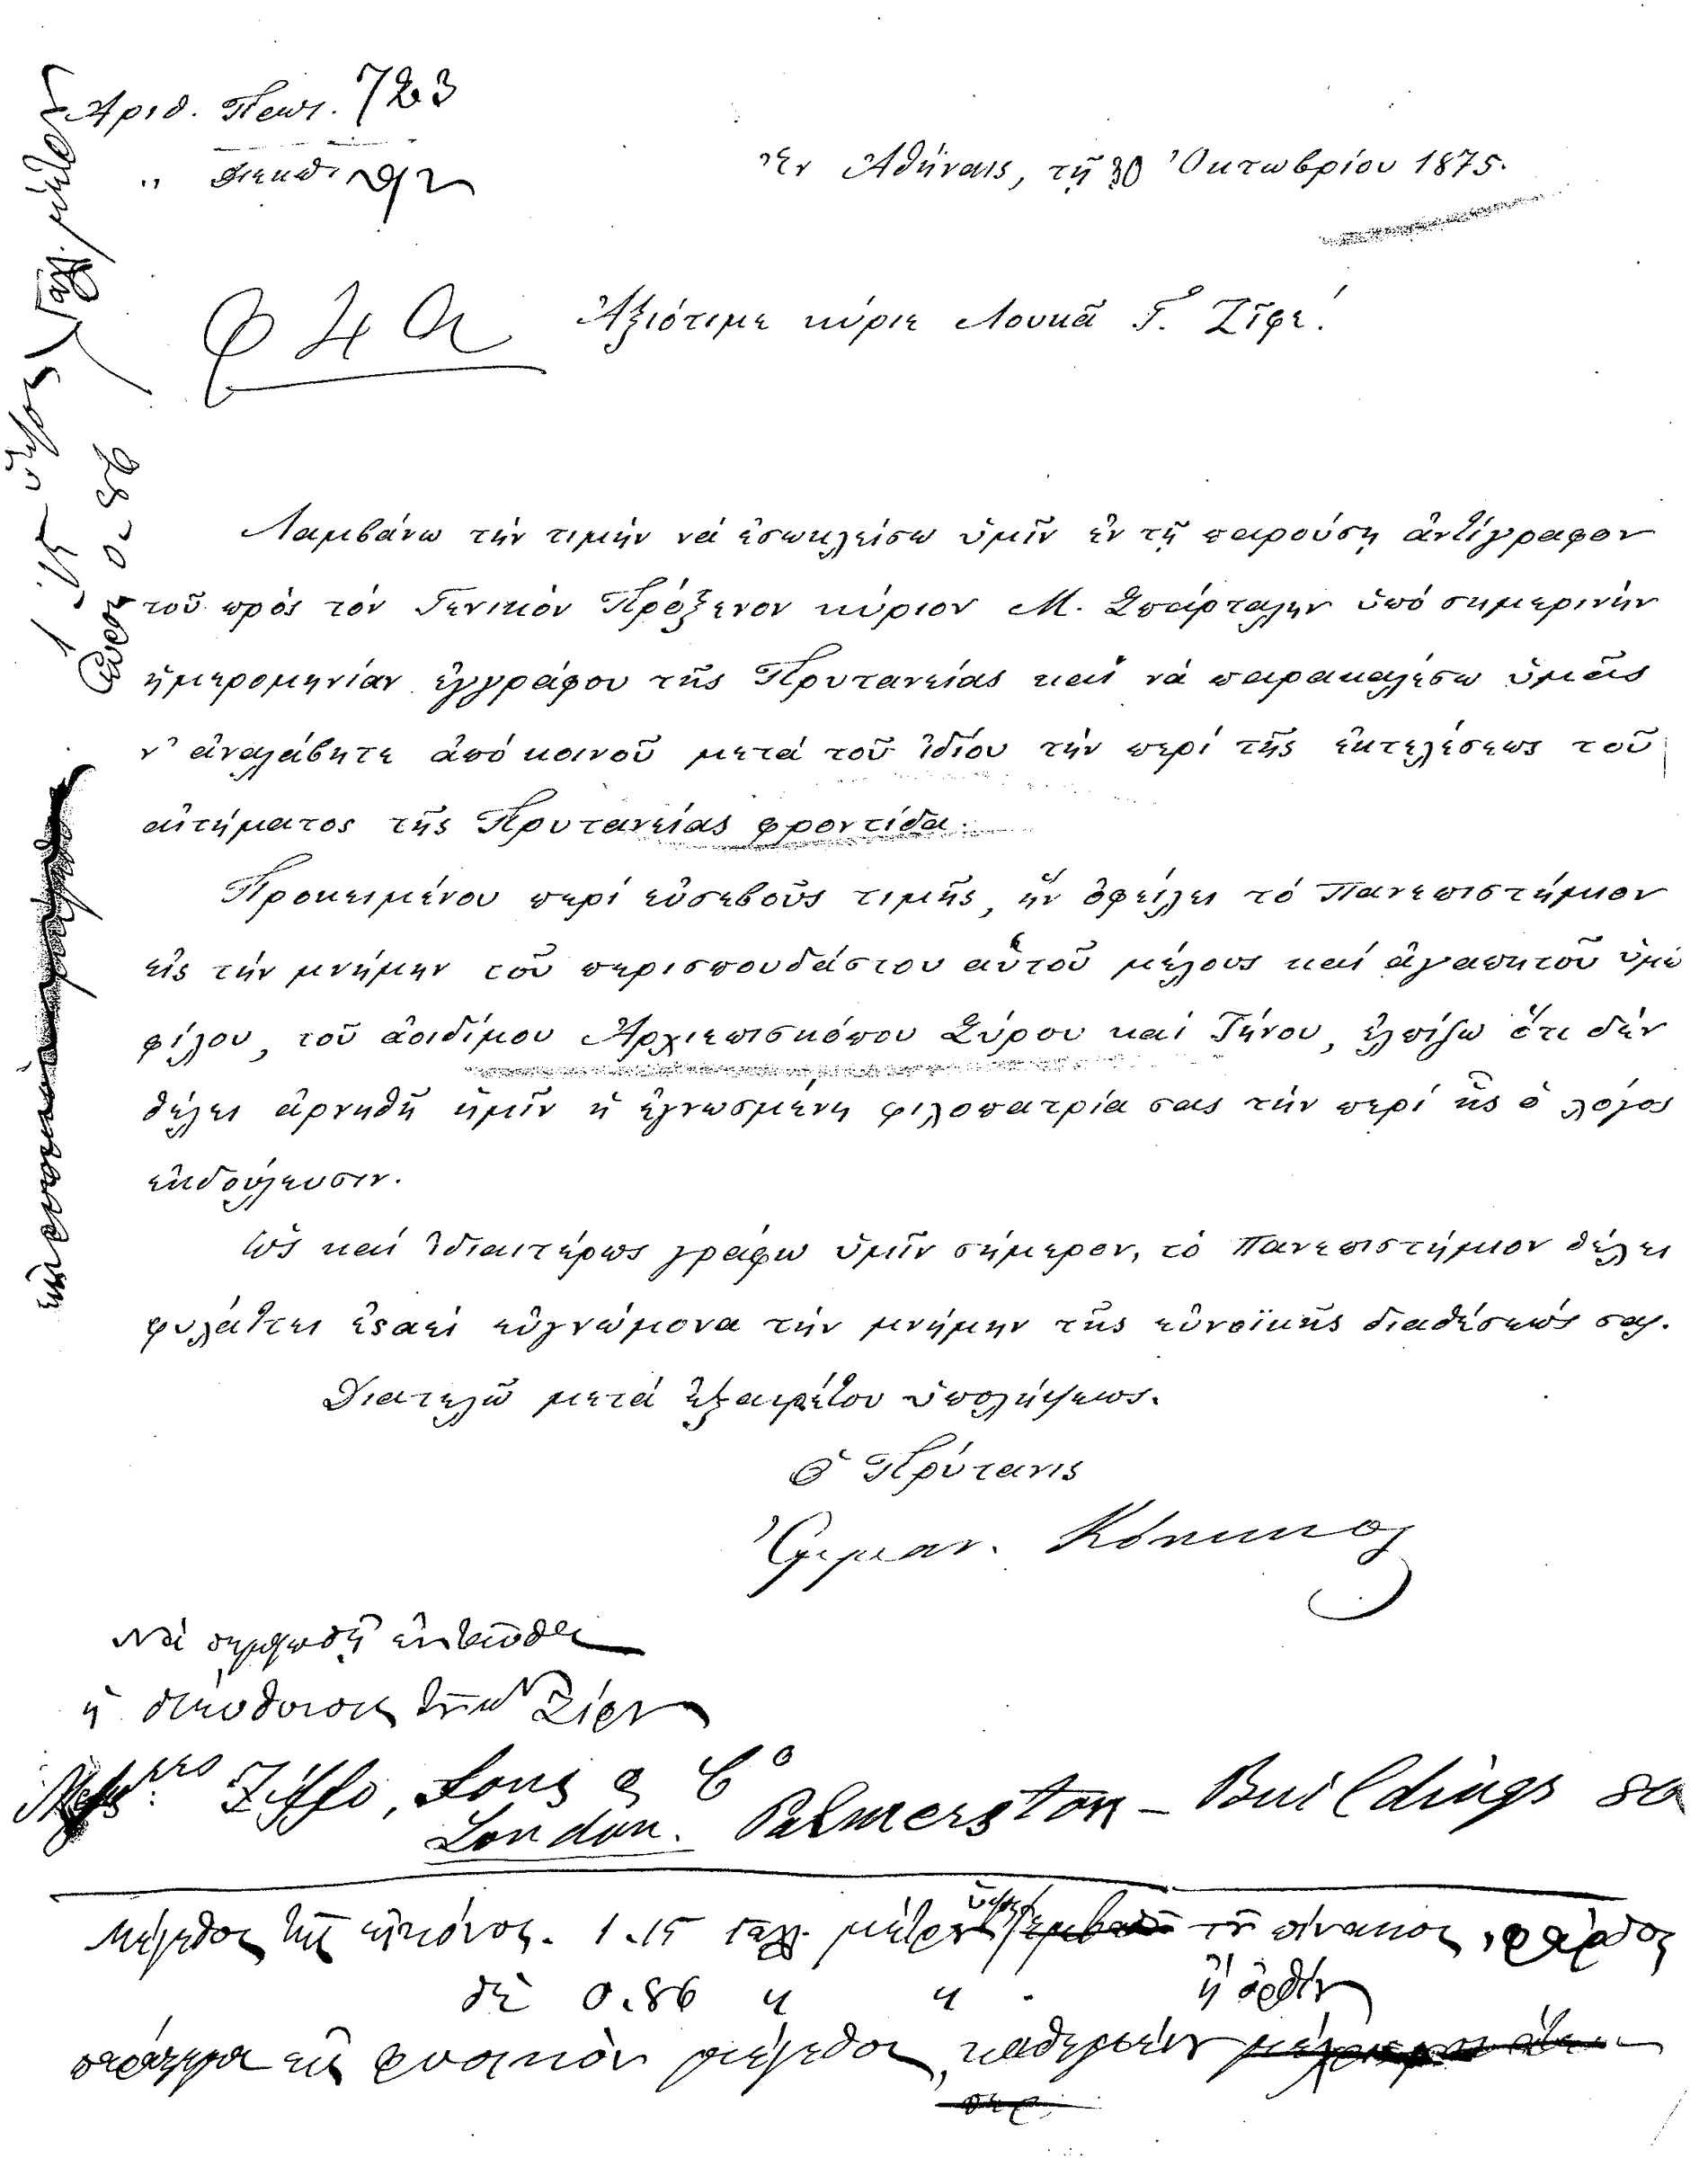 Ἀριθ. Πρωτ. 723
" Διεκπ.
Ἐν Ἀθήναις, τῇ 30 Ὀκτωβρίου 1875.
Φ 4 α
Ἀξιότιμε κύριε Λουκᾶ Γ. Ζῖφε!
Λαμβάνω τήν τιμήν νά ἐσωκλείσω ὑμῖν ἐν τῇ παρούσῃ ἀντίγραφον
τοῦ πρός τόν Γενικόν Πρόξενον κύριον Μ. Σπάρταλην ὑπό σημερινήν
ἡμερομηνίαν ἐγγράφου τῆς Πρυτανείας καί νά παρακαλέσω ὑμᾶς
ν' ἀναλάβητε ἀπό κοινοῦ μετά τοῦ ἰδίου τήν περί τῆς ἐκτελέσεως τοῦ
αἰτήματος τῆς Πρυτανείας φροντίδα.
Προκειμένου περί εὐσεβοῦς τιμῆς, ἥν ὀφείλει τό Πανεπιστήμιον
εἰς τήν μνήμην τοῦ περισπουδάστου αὑτοῦ μέλους καί ἀγαπητοῦ ὑμῶ
φίλου, τοῦ ἀοιδίμου Ἀρχιεπισκόπου Σύρου καί Τήνου, ἐλπίζω ὅτι δέν
θέλει ἀρνηθῆ ἡμῖν ἡ ἐγνωσμένη φιλοπατρία σας τήν περί ἧς ὁ λόγος
ἐκδούλευσιν.
Ὡς καί ἰδιαιτέρως γράφω ὑμῖν σήμερον, τό Πανεπιστήμιον θέλει
φυλάττει ἐςαεί εὐγνώμονα τήν μνήμην τῆς εὐνοϊκῆς διαθέσεώς σας.
Διατελῶ μετά ἐξαιρέτου ὑπολήψεως.
Ὁ Πρύτανις
Ἐμμαν. Κόκκινος
Νὰ σημειωθῇ ἐνταῦθα
ἡ διεύθυνσις τοῦ κ. Ζίφου
Messrs Ziffo, Sons & Co
London. Palmerston-Buildings 80
Μέγεθος τῆς εἰκόνος. 1.15 γαλλ. μέτρ. ὕψος τοῦ πίνακος, φάρδος
δὲ 0.86 " " . ἢ ὀρθίαν
εἰς φυσικὸν μέγεθος, καθημένην
1.15 ὕψος Γαλλ. μέτρα
0.86